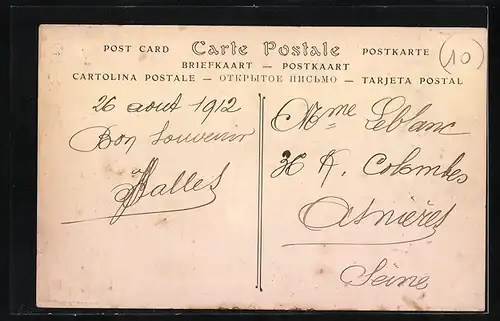 POST CARD Carte Postale POSTKARTE
BRIEFKAART — POSTKAART
CARTOLINA POSTALE — ОТКРЫТОЕ ПИСЬМО — TARJETA POSTAL
(10)
26 aout 1912
Bon Souvenir
Mme Leblanc
36 R. Colombes
Asnières
Seine